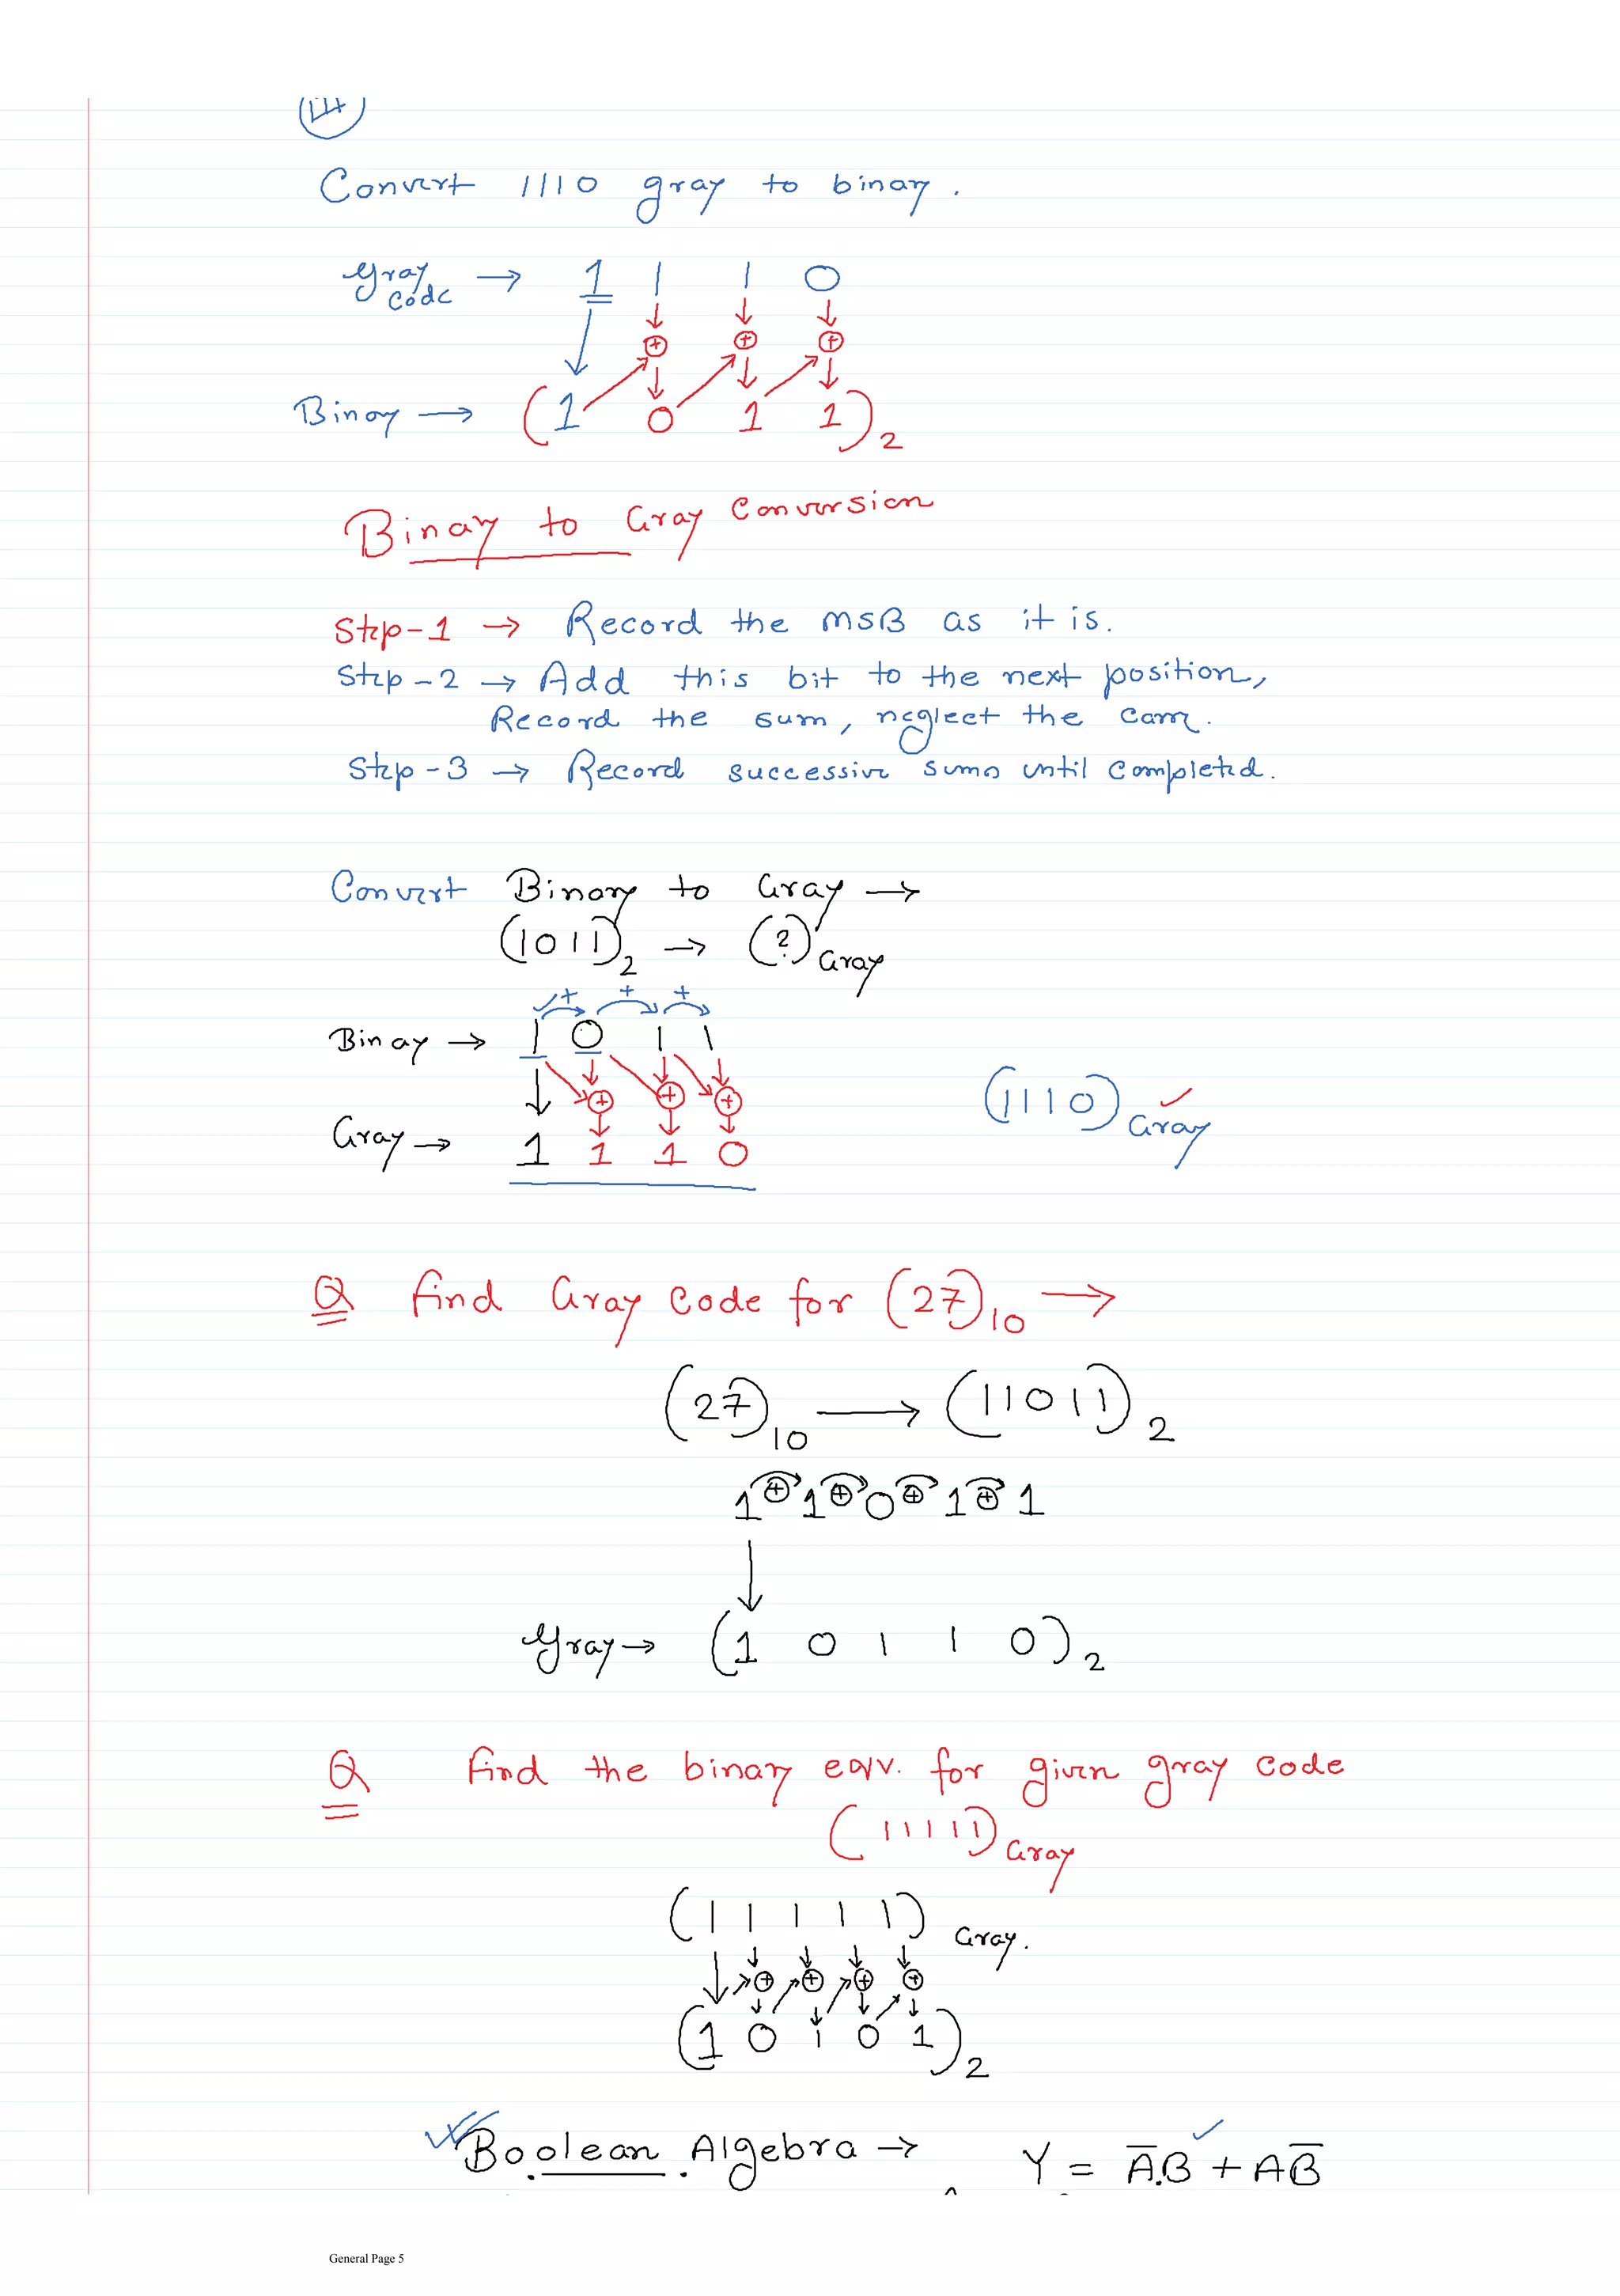 Convert 1110 gray to binary.
Gray code → 1 1 1 0
Binary → (1 0 1 1)₂
Binary to Gray Conversion
Step-1 → Record the MSB as it is.
Step-2 → Add this bit to the next position,
Record the sum, neglect the carry.
Step-3 → Record successive sums until completed.
Convert Binary to Gray →
(1011)₂ → (?)Gray
+ + +
Binary → 1 0 1 1
Gray → 1 1 1 0
(1110)Gray
Q Find Gray Code for (27)₁₀ →
(27)₁₀ → (11011)₂
1 ⊕ 1 ⊕ 0 ⊕ 1 ⊕ 1
Gray → (1 0 1 1 0)₂
Q Find the binary eqv. for given gray code
(11111)Gray
(1 1 1 1 1) Gray.
(1 0 1 0 1)₂
Boolean Algebra → Y = A̅.B + AB̅
General Page 5